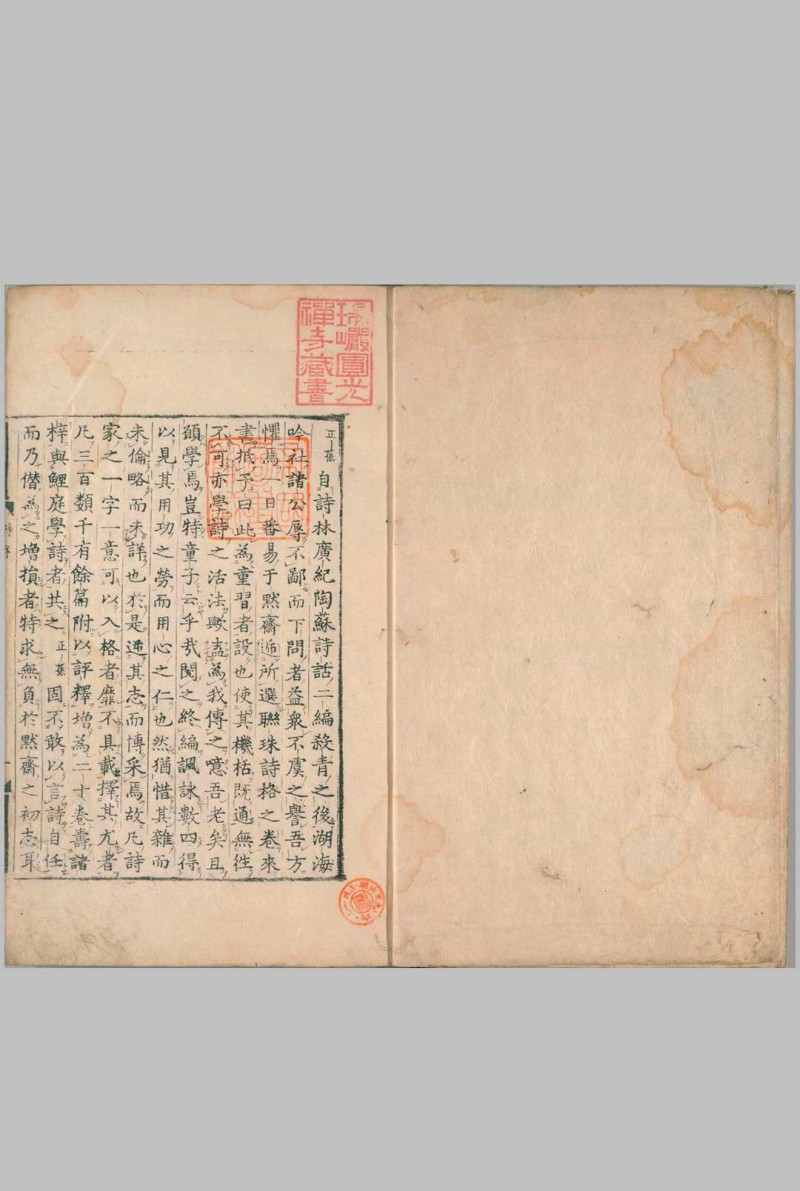 正孫自詩林廣紀陶蘇詩話二編殺青之後湖海
吟社諸公辱不鄙而下問者益衆不虞之譽吾方
懼焉一日番易于黙齋逓所選聯珠詩格之卷來
書抵予曰此為童習者設也使其機栝既通無往
不可亦學詩之活法歟盍為我傳之噫吾老矣且
頟學焉豈特童子云乎㢤閲之終編諷詠數四得
以見其用功之勞而用心之仁也然猶惜其雜而
未倫略而未詳也於是逓其志而博采焉故凡詩
家之一字一意可以入格者靡不具載擇其尤者
凡三百類千有餘篇附以評釋增為二十卷壽諸
梓與鯉庭學詩者共之正孫固不敢以言詩自任
而乃僭為之增損者特求無負於黙齋之初志耳
巖圓光
禪寺藏書